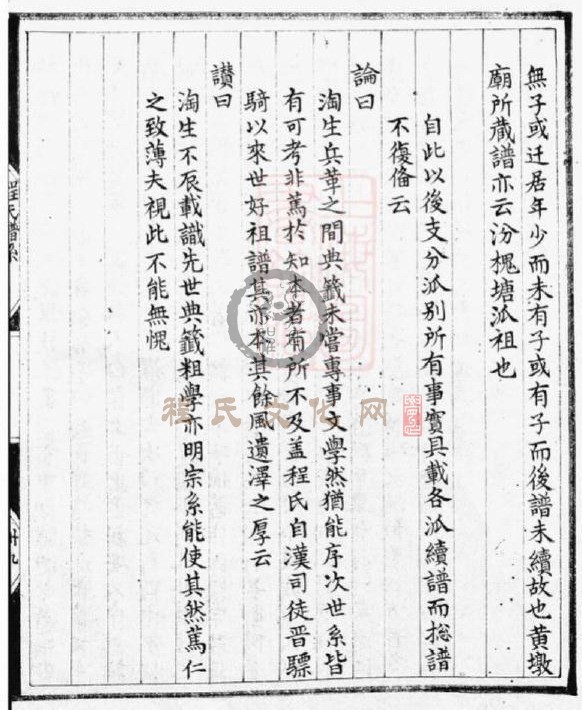 無子或迁居年少而未有子或有子而後譜未續故也黄墩
廟所蔵譜亦云汾槐塘派祖也
自此以後支分派別所有事實具載各派續譜而捴譜
不復俻云
論曰
淘生兵革之間典籤未嘗專事文學然猶能序次世系皆
有可考非篤於知本者有所不及盖程氏自漢司徒晋驃
騎以來世好祖譜其亦本其餘風遺澤之厚云
讃曰
淘生不辰載識先世典籤粗學亦明宗系能使其然篤仁
之致薄夫視此不能無愧
程氏譜系
廿九
程氏文化网